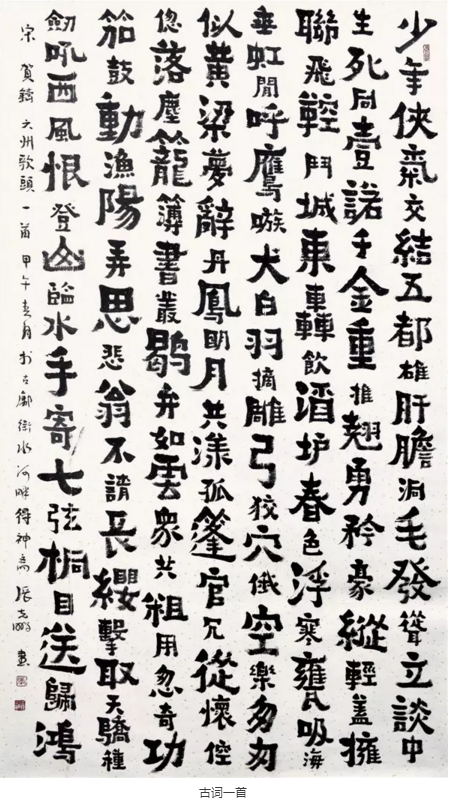 少年俠氣交結五都雄肝膽洞毛發聳立談中
生死同壹諾千金重推翹勇矜豪縱輕蓋擁
聯飛鞚鬥城東轟飲酒垆春色浮寒甕吸海
垂虹閒呼鷹嗾犬白羽摘雕弓狡穴俄空樂匆匆
似黃梁夢辭丹鳳明月共漾孤篷官冗從懷倥
傯落塵籠簿書叢鶡弁如雲衆共粗用忽奇功
笳鼓動漁陽弄思悲翁不請長纓擊取天驕種
劒吼西風恨登山臨水手寄七弦桐目送歸鴻
宋賀鑄六州歌頭一首甲午春月於古鄴衛水河畔得神齋張書
古词一首